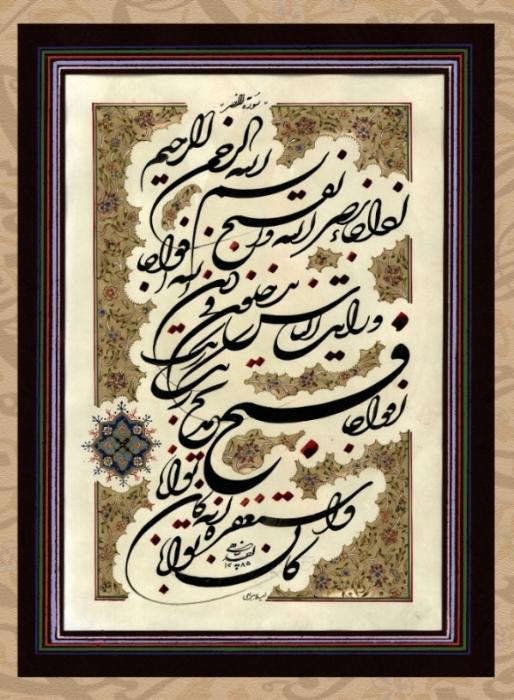 سورة النصر
بسم الله الرحمن الرحیم
اذا جاء نصر الله والفتح
ورایت الناس یدخلون فی دین الله افواجا
افواجا
فسبح بحمد ربک
واستغفره انه کان توابا
کان توابا